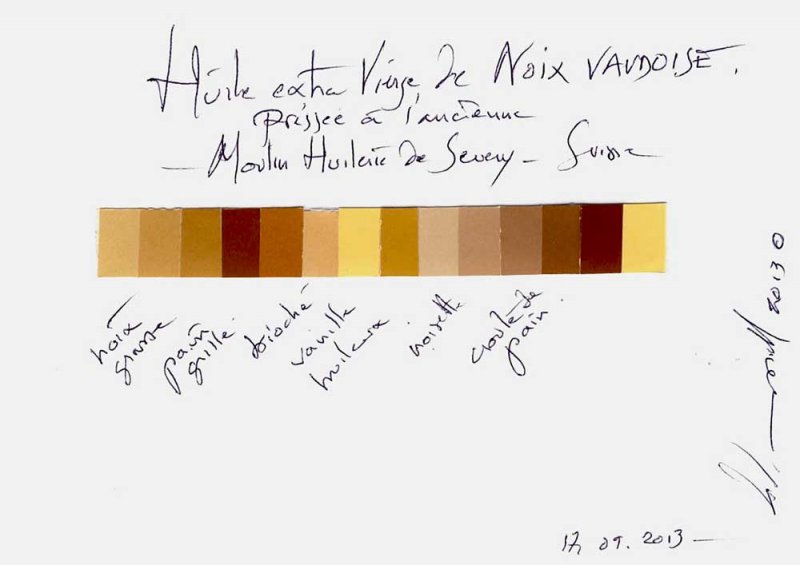 Huile extra Vierge de NOIX VAUDOISE.
pressée à l'ancienne
— Moulin Huilerie de Severy - Suisse
noix
grasse
pain
grillé.
brioché
vanille
huileux
noisette
croûte de
pain.
2013
17, 09. 2013 —